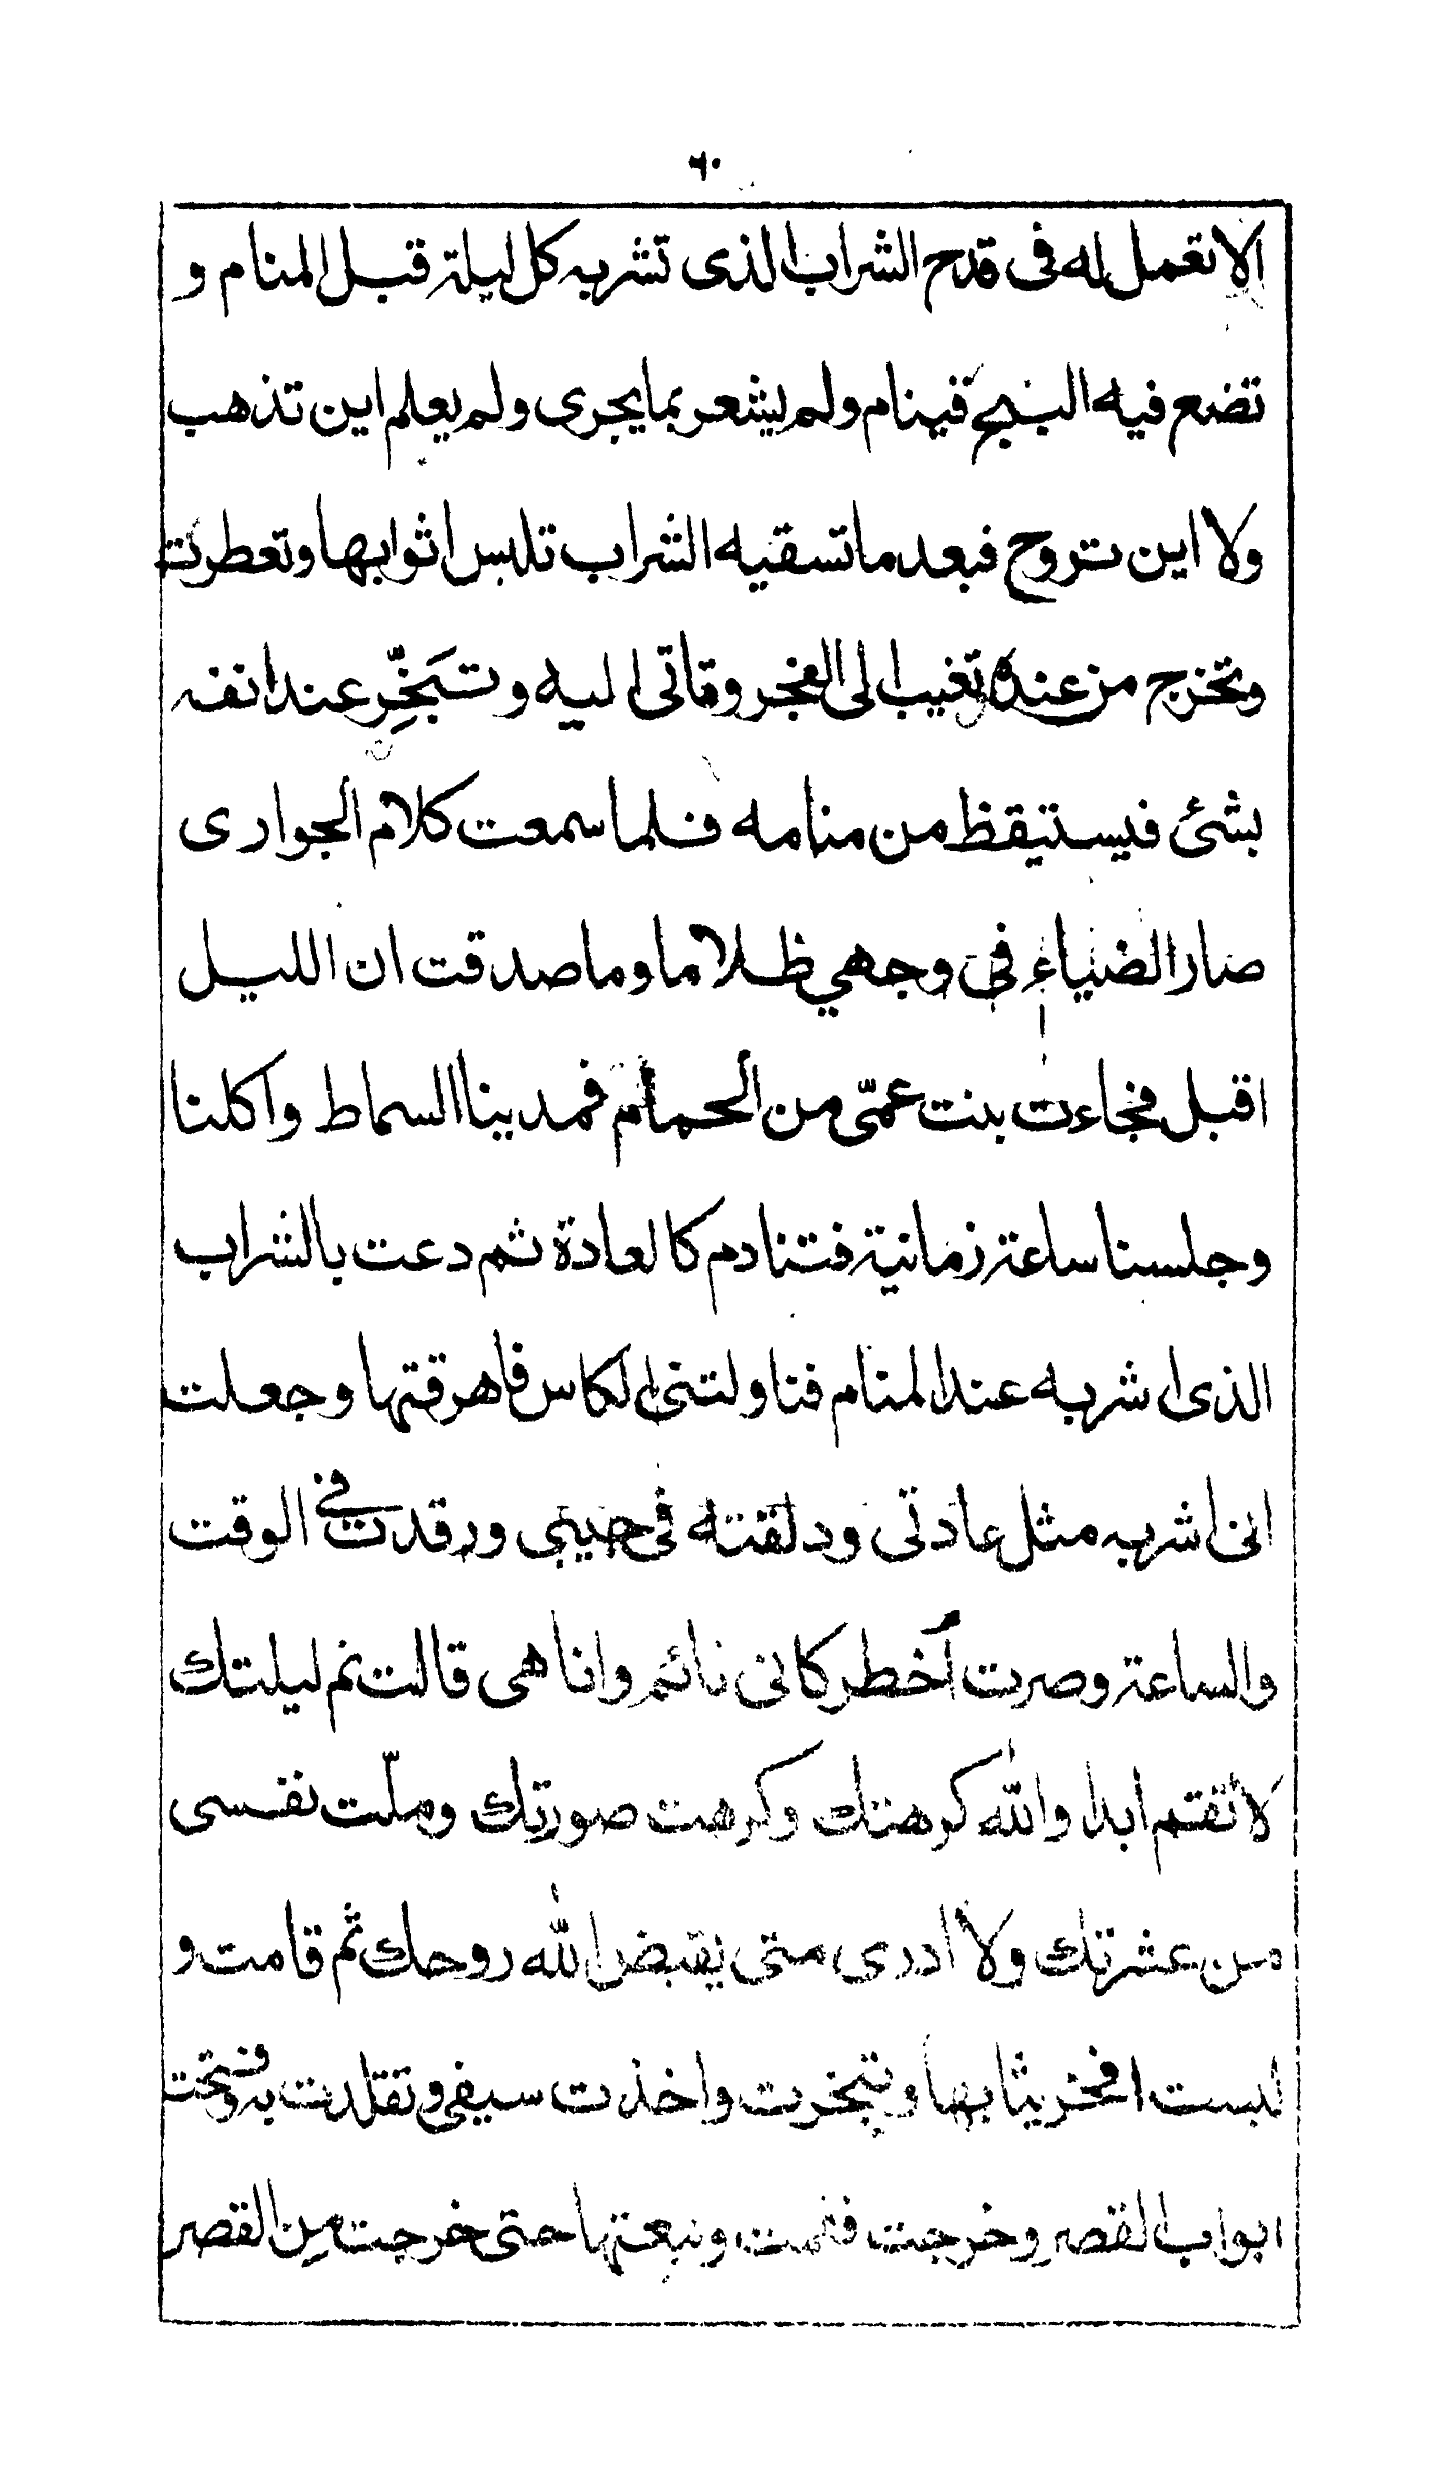 ٦٠
الا تعمل له فى قدح الشراب الذى تشربه كل ليلة قبل المنام و
تضع فيه البنج فينام ولم يشعر بما يجرى ولم يعلم اين تذهب
ولا اين تروح فبعد ما تسقيه الشراب تلبس اثوابها وتعطرت
وتخرج من عنده وتغيب الى الفجر وتاتى اليه وتبَخِّر عند انفه
بشئ فيستيقظ من منامه فلما سمعت كلام الجوارى
صار الضياء فى وجهي ظلاما وما صدقت ان الليل
اقبل فجاءت بنت عمّى من الحمام فمدينا السماط واكلنا
وجلسنا ساعة زمانية فتنادم كالعادة ثم دعت بالشراب
الذى اشربه عند المنام فناولتنى الكاس فاهرقتها وجعلت
انى اشربه مثل عادتى ودلقته فى جيبى ورقدت فى الوقت
والساعة وصرت أخطر كانى نائم وانا هى قالت نم ليلتك
لا تقتم ابدا والله كرهتك وكرهت صورتك وملّت نفسى
من عشرتك ولا ادرى متى يقبض الله روحك ثم قامت و
لبست افخر ثيابها وتبخرت واخذت سيفى وتقلدت به وفتحت
ابواب القصر وخرجت فقمت وتبعتها حتى خرجت من القصر